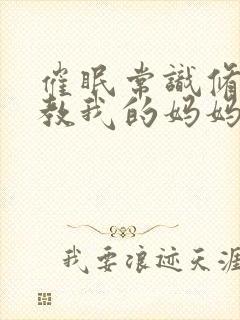 催眠常識脩
教我的妈妈
我要浪迹天涯